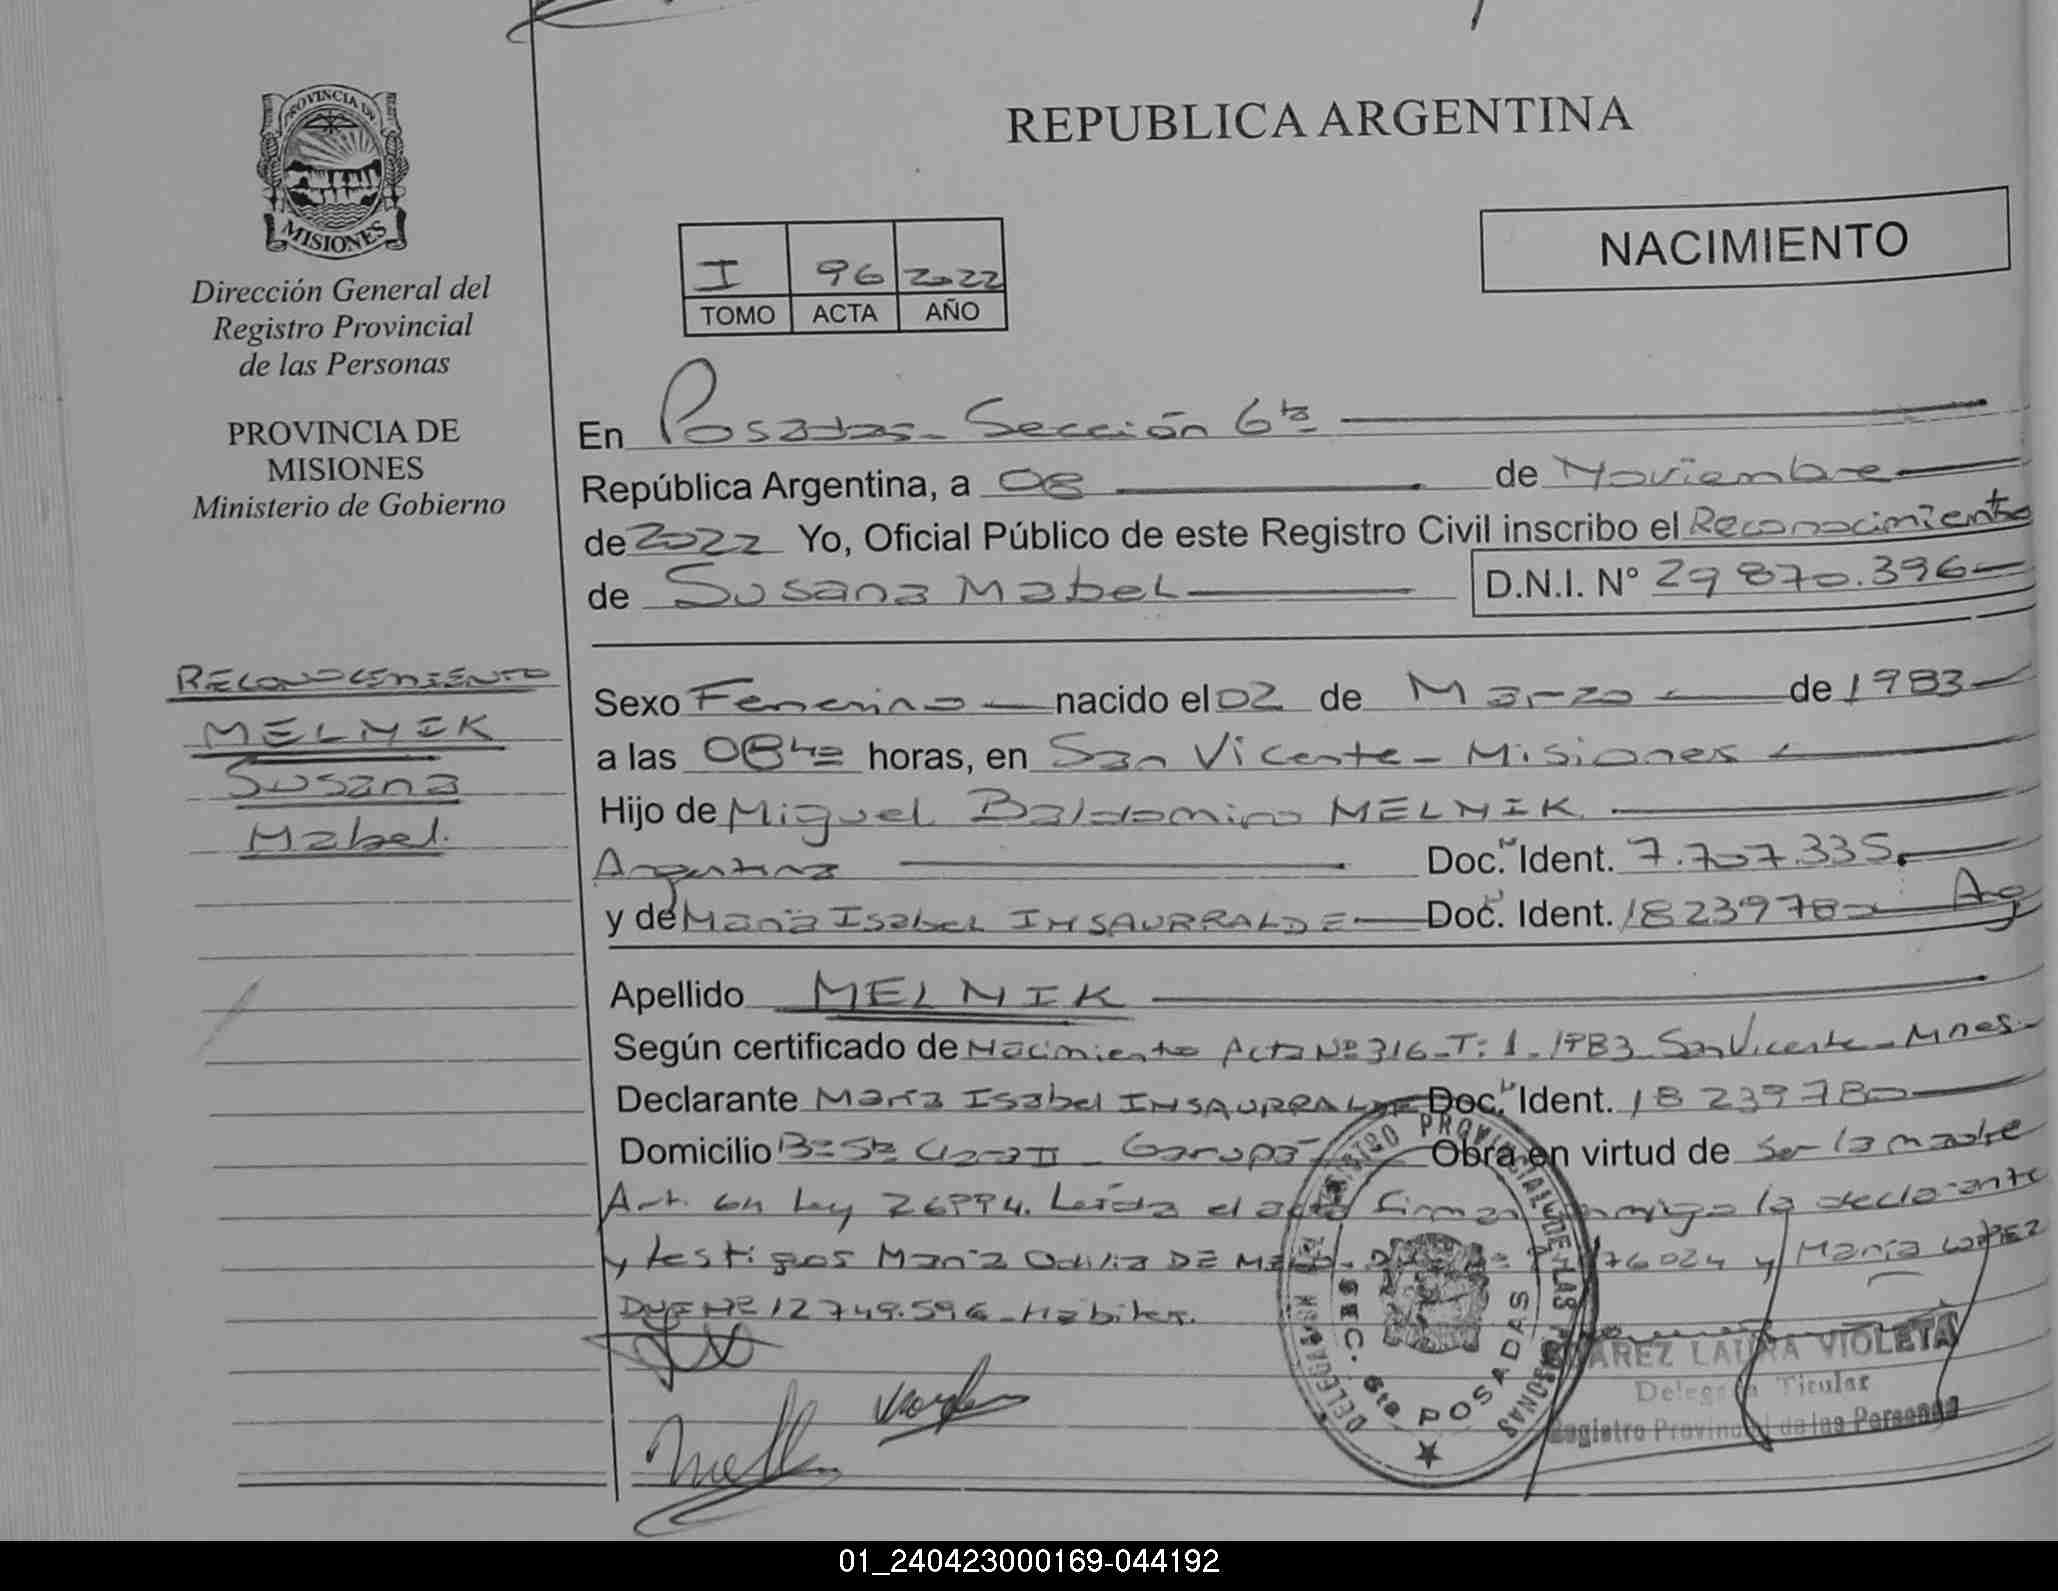 PROVINCIA DE
MISIONES
Dirección General del
Registro Provincial
de las Personas
PROVINCIA DE
MISIONES
Ministerio de Gobierno
RECONOCIMIENTO
MELNIK
Susana
Mabel.
REPUBLICA ARGENTINA
NACIMIENTO
I 96 2022
TOMO ACTA AÑO
En Posadas - Sección 6ta
República Argentina, a 08 de Noviembre
de 2022 Yo, Oficial Público de este Registro Civil inscribo el Reconocimiento
de Susana Mabel D.N.I. N° 29 870.396
Sexo Femenino nacido el 02 de Marzo de 1983
a las 08 hs horas, en San Vicente - Misiones
Hijo de Miguel Baldomino MELNIK
Argentina Doc. Ident. 7.707.335
y de María Isabel INSAURRALDE Doc. Ident. 18239780 Arg
Apellido MELNIK
Según certificado de Nacimiento Acta Nº 316 - T: 1 - 1983 San Vicente - Mnes.
Declarante María Isabel INSAURRALDE Doc. Ident. 18 239 780
Domicilio Bº Sta Clara II - Garupá Obra en virtud de ser la madre
Art. Ley 26994. Leída el acta firman conmigo la declarante
y testigos María Odilia DE 76024 y María LOPEZ
DNI Nº 12 749.596 - Hábiles.
REGISTRO PROVINCIAL DE LAS PERSONAS
SEC. 6ta POSADAS
LAURA VIOLETA
Delegada Titular
Registro Provincial de las Personas
01_240423000169-044192